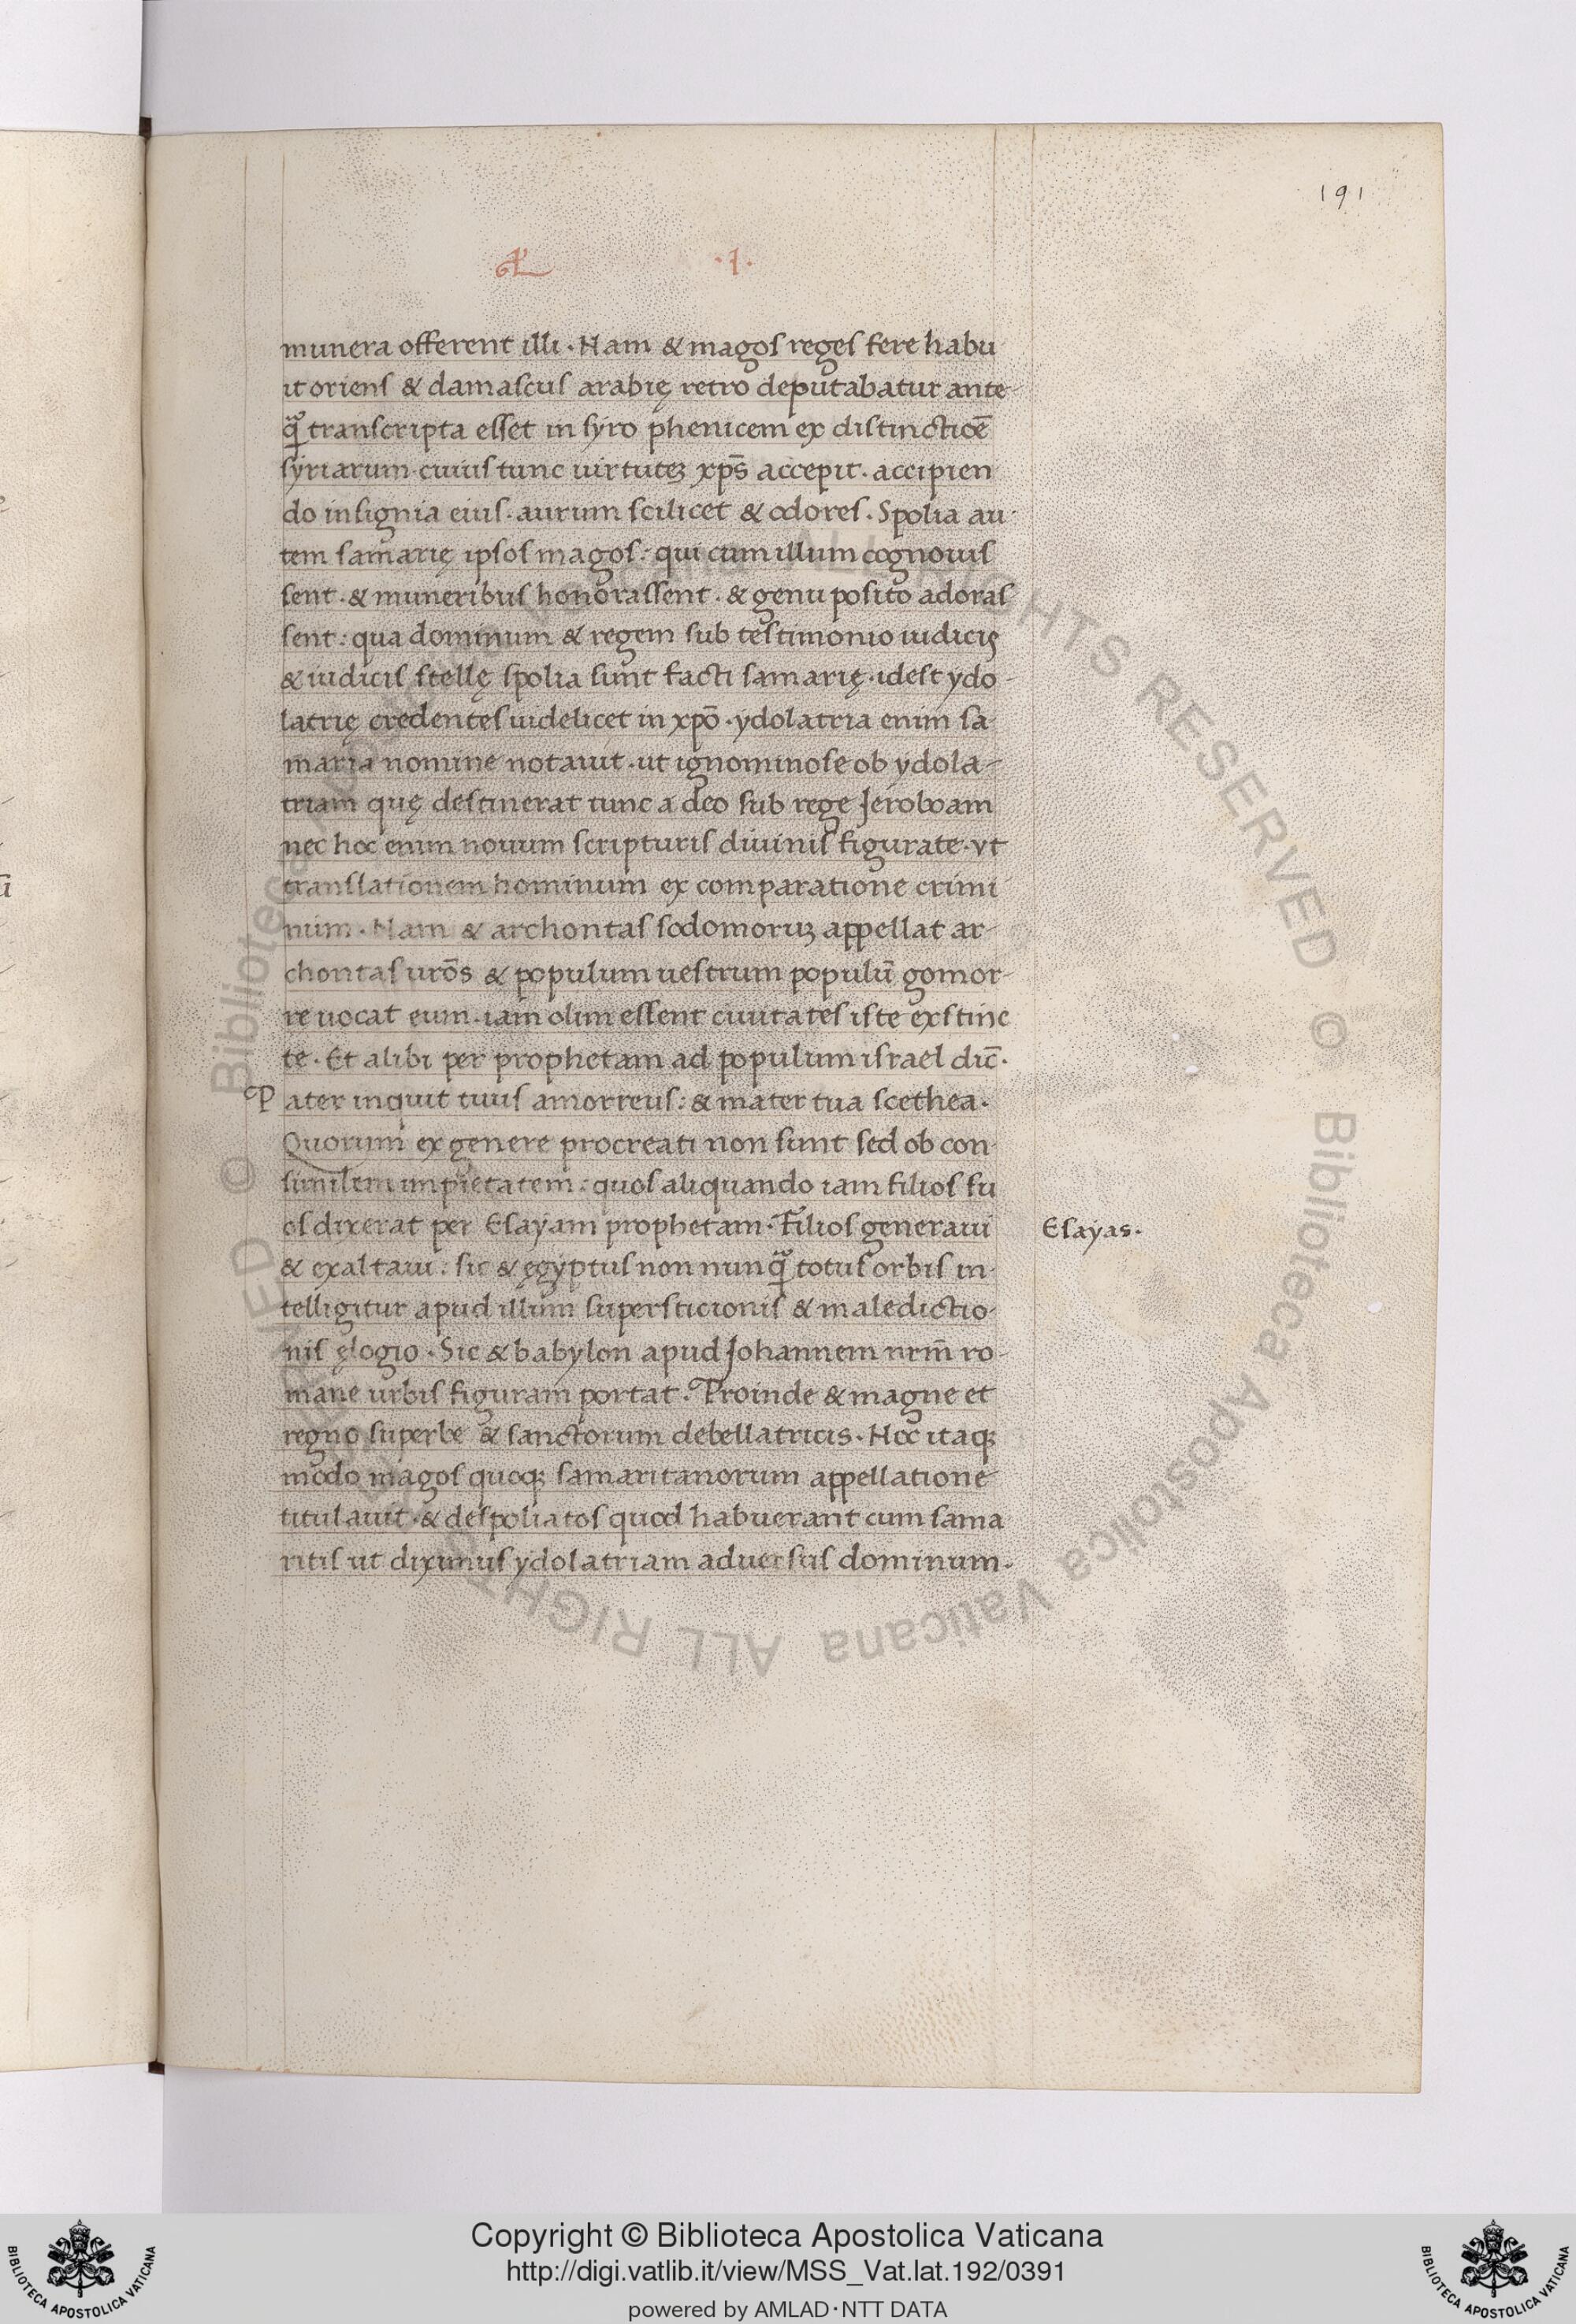 191
·I·
munera offerent illi · Nam & magos reges fere habu
it oriens & damascus arabię retro deputabatur ante-
q̃ transcripta esset in syro phenicem ex distinctiõe
syriarum · cuius tunc uirtutẽ xp̄s accepit · accipien
do insignia eius · aurum scilicet & odores · Spolia au-
tem samarię ipsos magos : qui cum illum cognouis
sent · & muneribus honorassent · & genu posito adoras
sent : qua dominum & regem sub testimonio iudicię
& iudicis stellę spolia sunt facti samarię · idest ydo-
latrię credentes uidelicet in xp̄o · ydolatria enim sa-
maria nomine notauit · ut ignominose ob ydola-
triam quę destinerat tunc a deo sub rege Jeroboam
nec hoc enim nouum scripturis diuinis figurate · vt
translationem hominum ex comparatione crimi
num · Nam & archontas sodomoruꝫ appellat ar-
chontas ur̄os & populum uestrum populū gomor-
re uocat eum · iam olim essent ciuitates iste exstinc
te · Et alibi per prophetam ad populum israel dic̄ ·
Pater inquit tuus amorreus : & mater tua scethea ·
Quorum ex genere procreati non sunt sed ob con-
similem impietatem : quos aliquando iam filios su
os dixerat per Esayam prophetam · Filios generaui
Esayas ·
& exaltaui : sic & ęgyptus non nunq̃ totus orbis in-
telligitur apud illum supersticionis & maledictio-
nis ęlogio · Sic & babylon apud Johannem nrm̄ ro-
mane urbis figuram portat · Proinde & magne et
regno superbe & sanctorum debellatricis · Hoc itaqꝫ
modo magos quoqꝫ samaritanorum appellatione
titulauit · & despoliatos quod habuerant cum sama
ritis ut diximus ydolatriam aduersus dominum ·
© Biblioteca Apostolica Vaticana ALL RIGHTS RESERVED
© Biblioteca Apostolica Vaticana ALL RIGHTS RESERVED
Copyright © Biblioteca Apostolica Vaticana
http://digi.vatlib.it/view/MSS_Vat.lat.192/0391
powered by AMLAD·NTT DATA
BIBLIOTECA APOSTOLICA VATICANA
BIBLIOTECA APOSTOLICA VATICANA